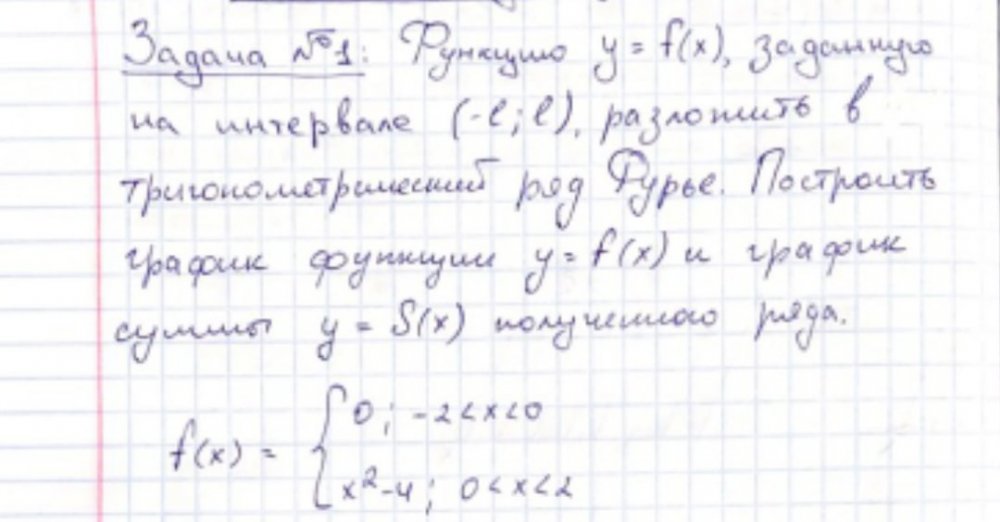 Задача №1: Функцию y = f(x), заданную
на интервале (-l; l), разложить в
тригонометрический ряд Фурье. Построить
график функции y = f(x) и график
суммы y = S(x) полученного ряда.
f(x) = { 0; -2 < x < 0
x²-4; 0 < x < 2